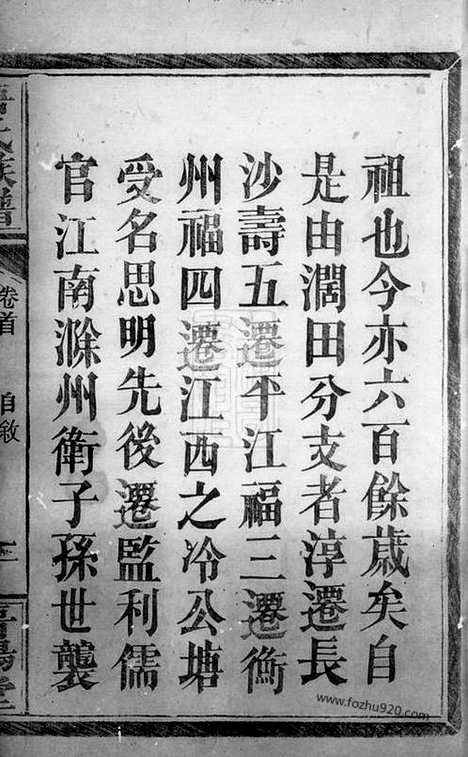 祖也今亦六百餘歲矣自
是由澗田分支者淳遷長
沙壽五遷平江福三遷衡
州福四遷江西之冷公塘
受名思明先後遷監利儒
官江南滁州衛子孫世襲
族譜
卷首
自敘
www.fozhu920.com